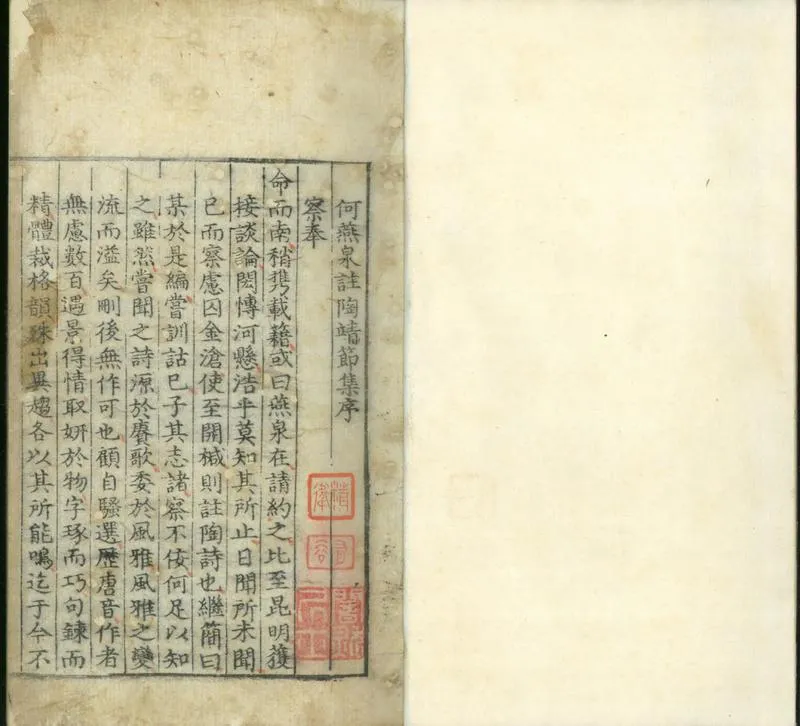 何燕泉註陶靖節集序
察奉
命而南稍携載籍或曰燕泉在請約之比至昆明獲
接談論閎愽河懸浩乎莫知其所止日聞所未聞
已而察慮囚金滄使至開椷則註陶詩也繼簡曰
某於是編嘗訓詁已子其志諸察不佞何足以知
之雖然嘗聞之詩源於賡歌委於風雅風雅之變
流而溢矣刪後無作可也顧自騷選歷唐音作者
無慮數百遇景得情取妍於物字琢而巧句鍊而
精體裁格韻殊出異趨各以其所能鳴迄于今不